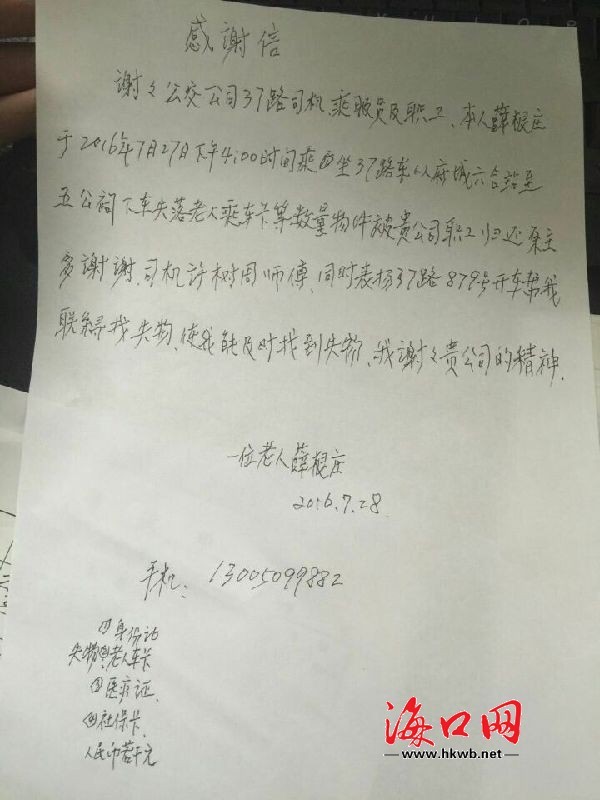 感謝信
謝々公交公司37路司机乘服员及职工、本人薛根庄
于2016年7月27日下午4:00时间乘坐37路车从府城六合站至
五公祠下车失落老人乘车卡等数量物件被贵公司职工归还原主
多謝謝、司机許树周师傅、同时表扬37路879号开车帮我
联寻找失物、使我能及时找到失物、我謝々贵公司的精神.
一位老人薛根庄
2016.7.28
手机: 13005099882
①身份证
失物②老人车卡
③医疗证
④社保卡
人民币若干元
海口网
www.hkwb.net